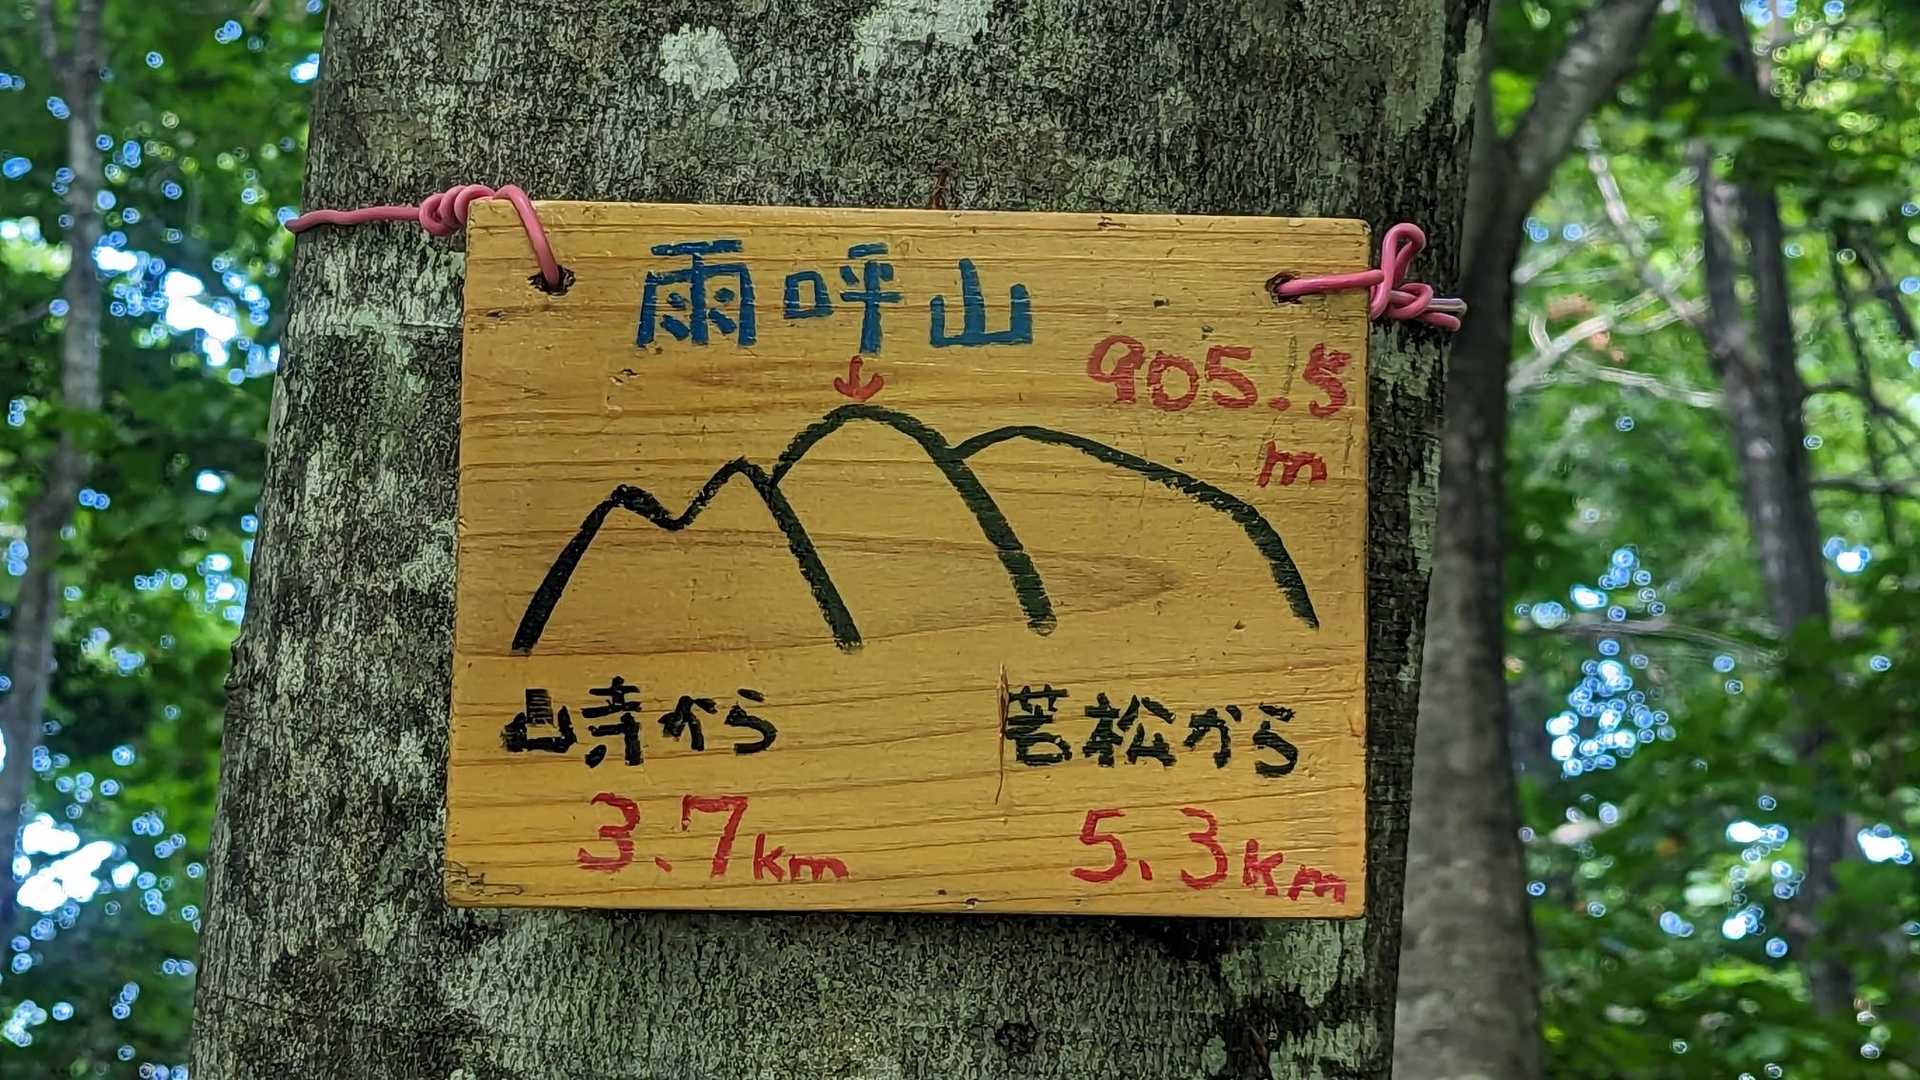 雨呼山
↓
905.5
m
山寺から
若松から
3.7km
5.3km